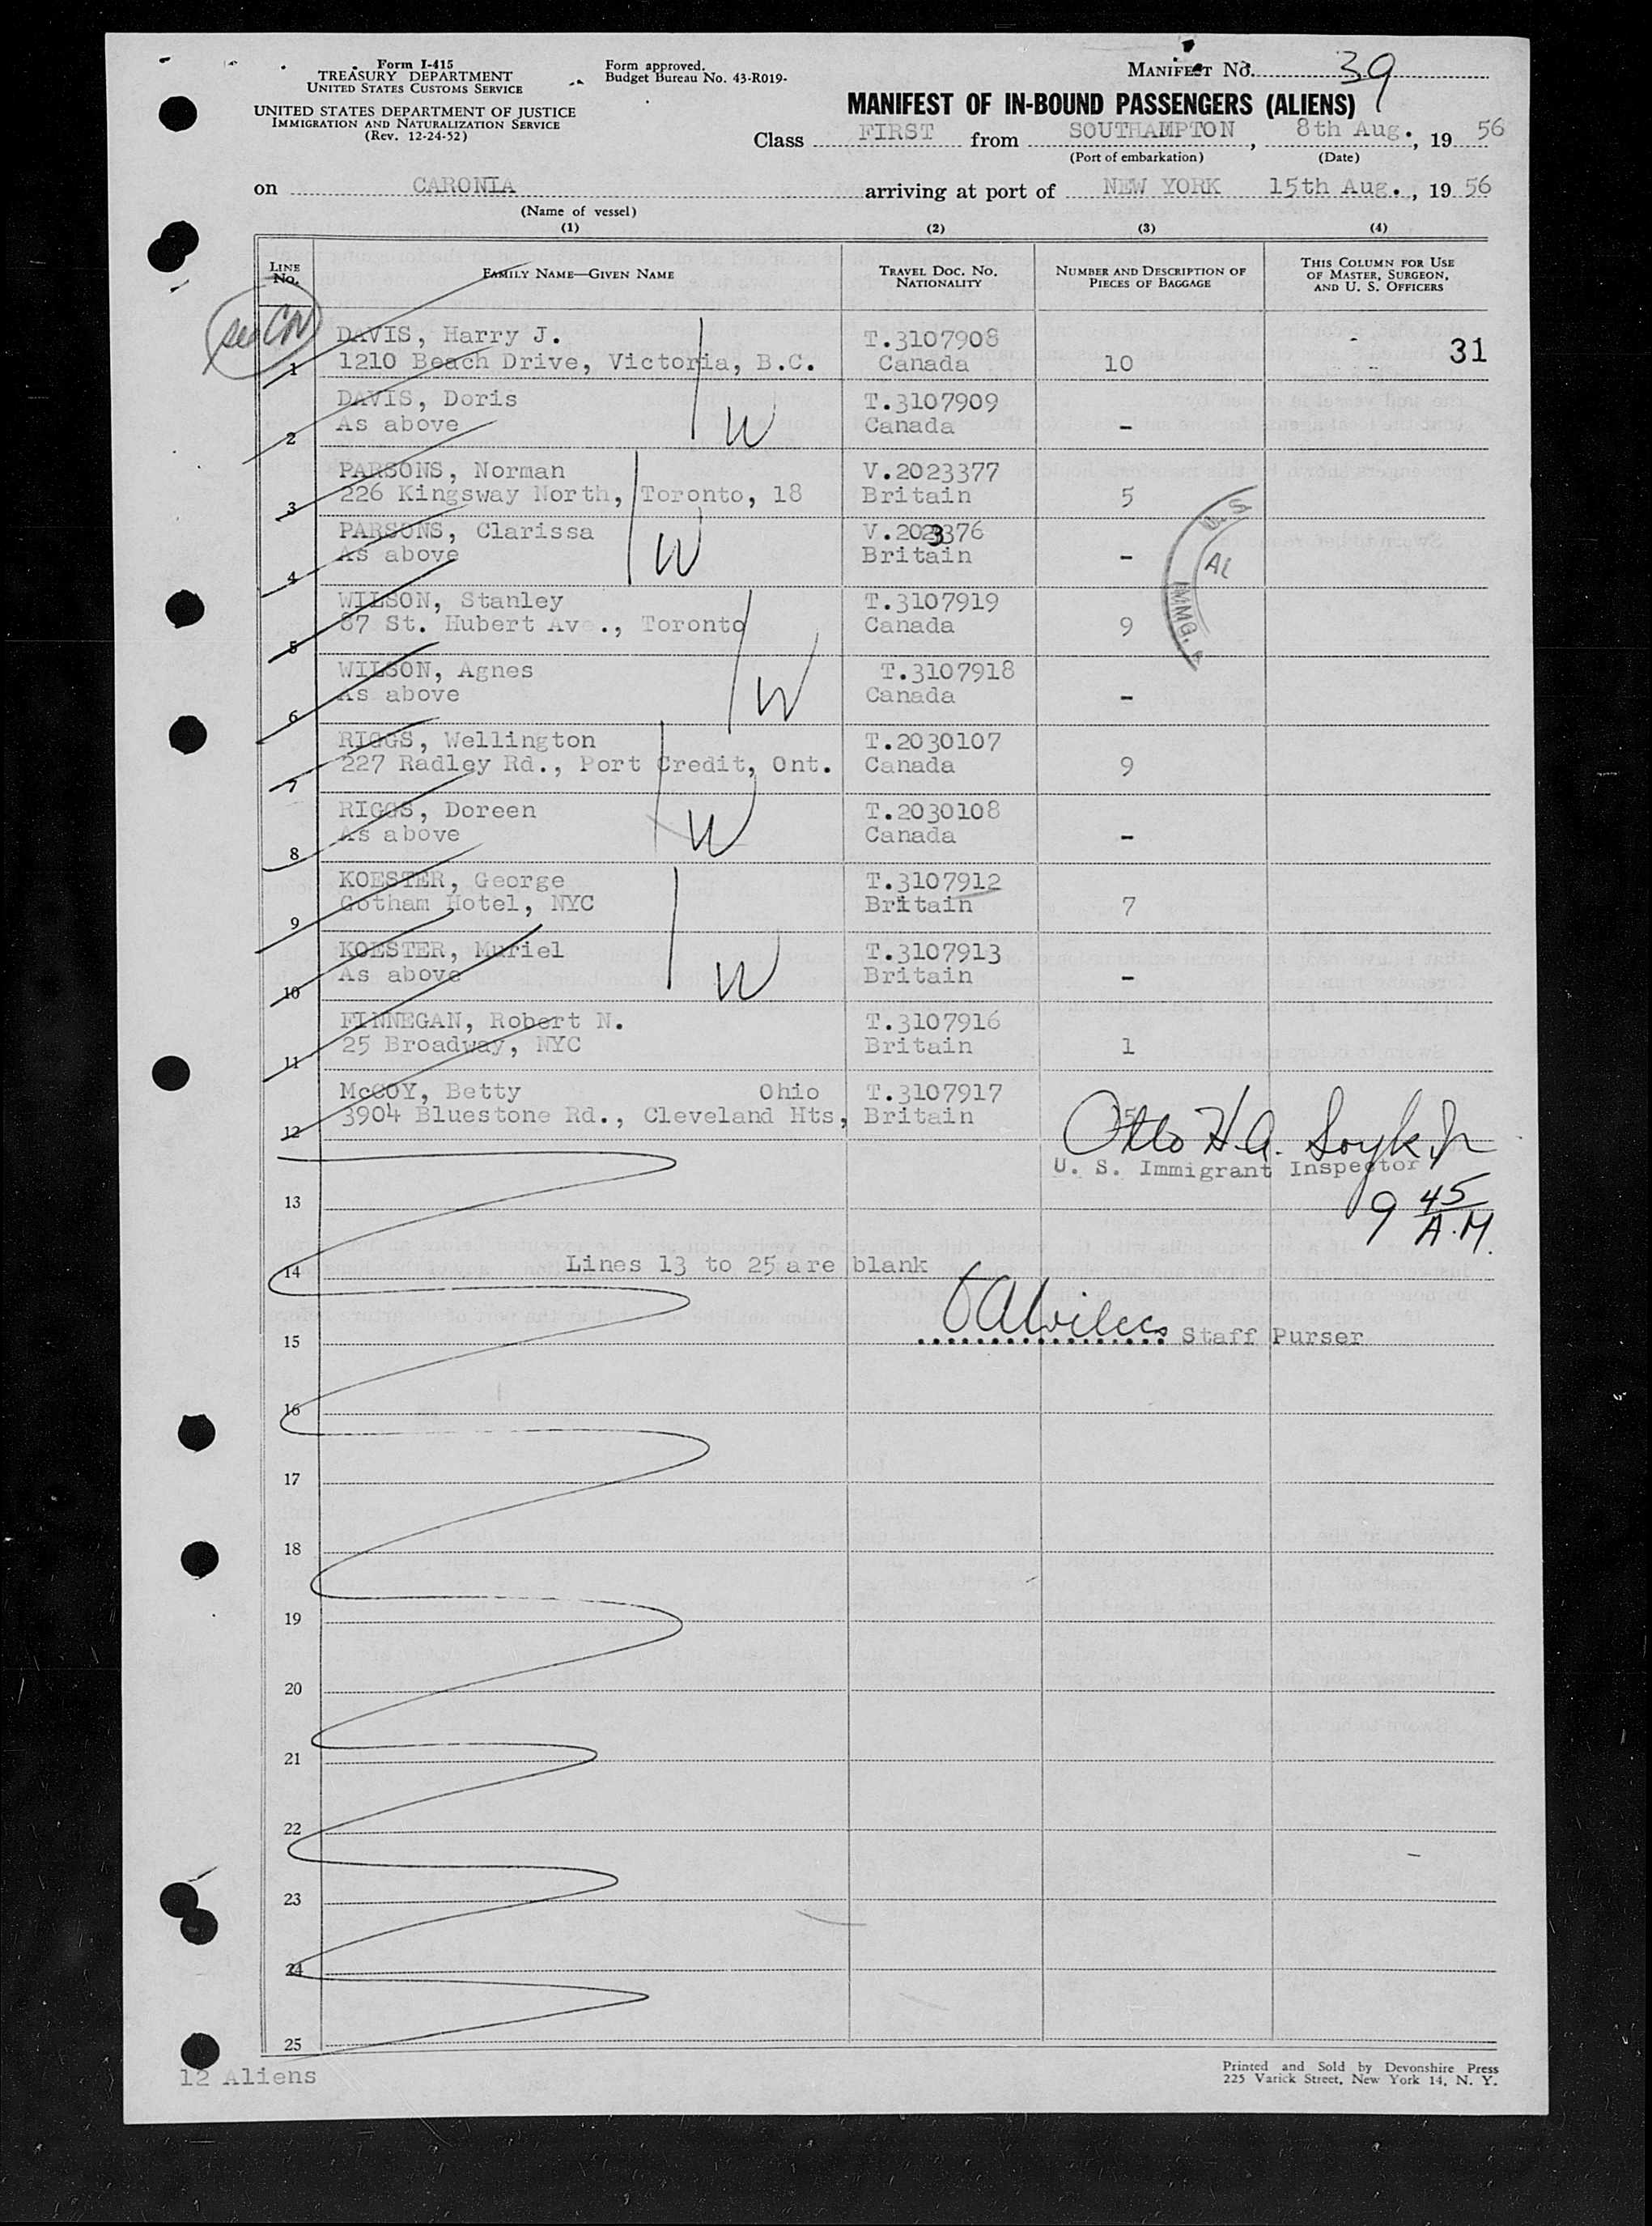 Form I-415
TREASURY DEPARTMENT
UNITED STATES CUSTOMS SERVICE
UNITED STATES DEPARTMENT OF JUSTICE
IMMIGRATION AND NATURALIZATION SERVICE
(Rev. 12-24-52)
Form approved.
Budget Bureau No. 43-R019-
MANIFEST NO. 39
MANIFEST OF IN-BOUND PASSENGERS (ALIENS)
Class FIRST from SOUTHAMPTON, 8th Aug., 19 56
(Port of embarkation) (Date)
on CARONIA arriving at port of NEW YORK 15th Aug., 19 56
(Name of vessel)
(1) (2) (3) (4)
LINE No. FAMILY NAME—GIVEN NAME TRAVEL DOC. NO. NATIONALITY NUMBER AND DESCRIPTION OF PIECES OF BAGGAGE THIS COLUMN FOR USE OF MASTER, SURGEON, AND U. S. OFFICERS
see CN
DAVIS, Harry J. T.3107908 31
1 1210 Beach Drive, Victoria, B.C. Canada 10
DAVIS, Doris T.3107909
2 As above W Canada -
PARSONS, Norman V.2023377
3 226 Kingsway North, Toronto, 18 Britain 5
PARSONS, Clarissa V.2023376
4 As above W Britain -
WILSON, Stanley T.3107919
5 87 St. Hubert Av ., Toronto Canada 9
WILSON, Agnes T.3107918
6 As above W Canada -
RIGGS, Wellington T.2030107
7 227 Radley Rd., Port Credit, Ont. Canada 9
RIGGS, Doreen T.2030108
8 As above W Canada -
KOESTER, George T.3107912
9 Gotham Hotel, NYC Britain 7
KOESTER, Muriel T.3107913
10 As above W Britain -
FINNEGAN, Robert N. T.3107916
11 25 Broadway, NYC Britain 1
McCOY, Betty Ohio T.3107917
12 3904 Bluestone Rd., Cleveland Hts, Britain 5
U. S.
AL
IMMG.
Otto H.A. Soyk Jr
U. S. Immigrant Inspector
9 45 A.M.
13
14 Lines 13 to 25 are blank
15 Staff Purser
16
17
18
19
20
21
22
23
24
25
12 Aliens
Printed and Sold by Devonshire Press
225 Varick Street, New York 14, N. Y.